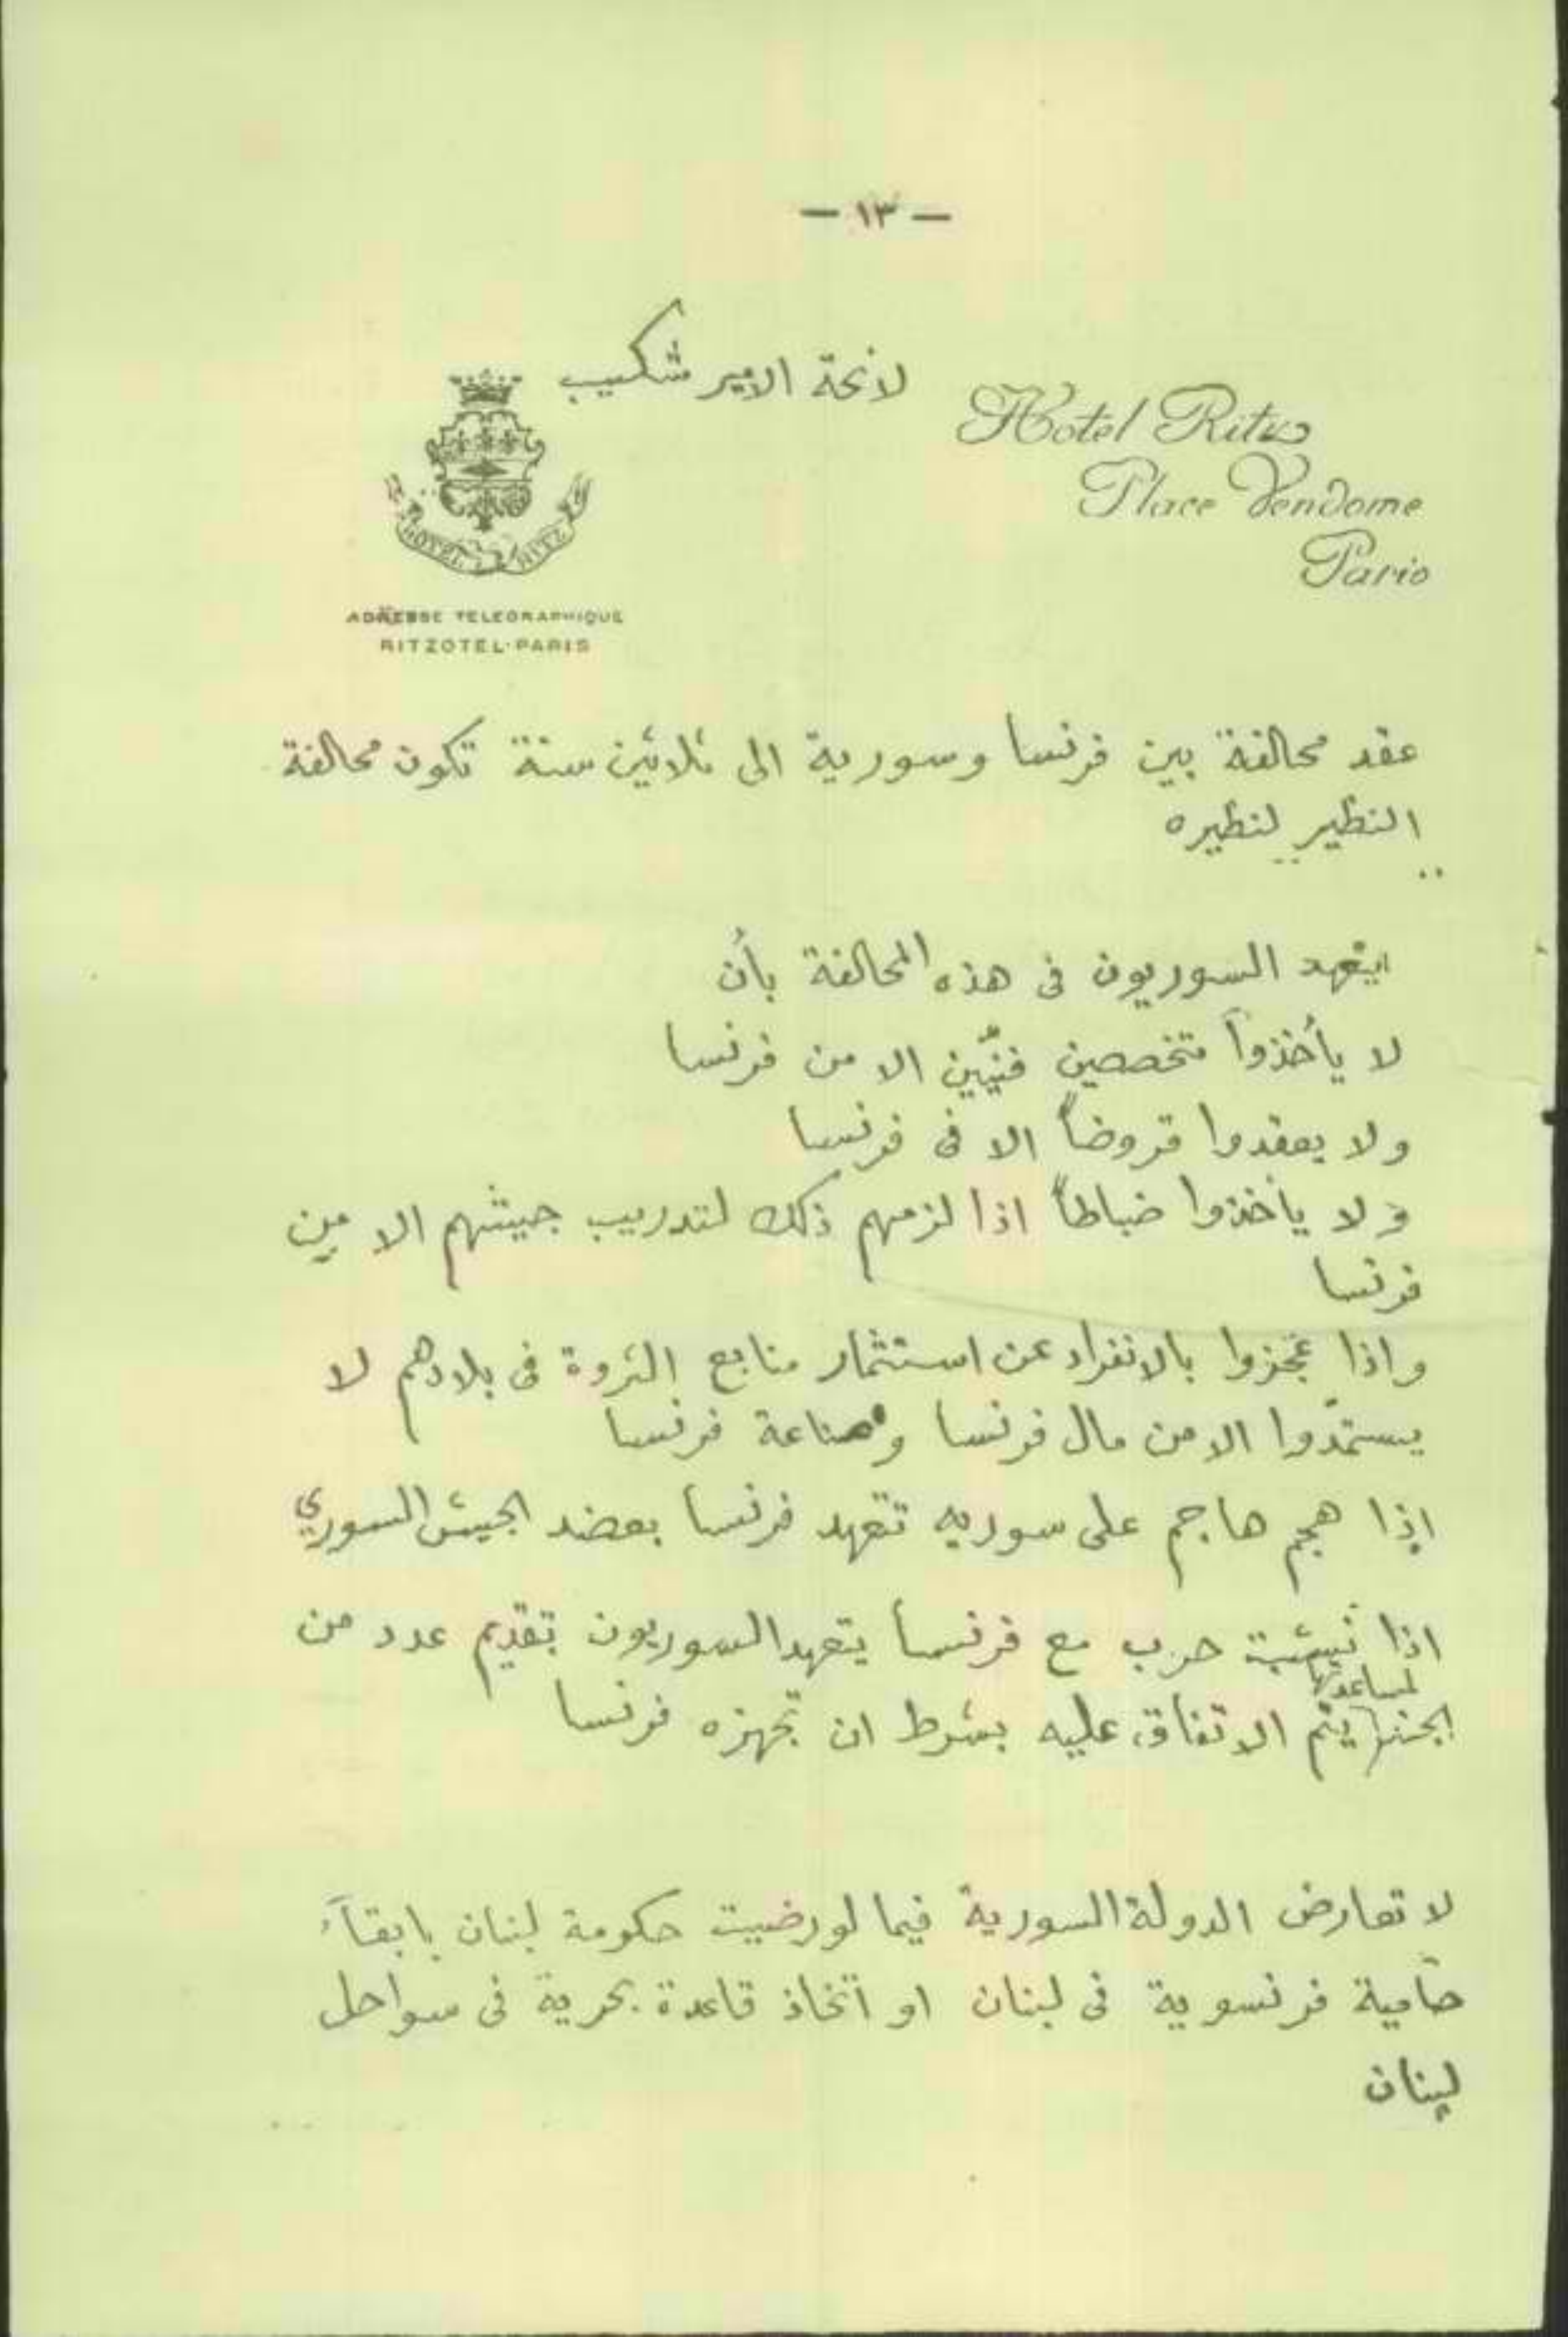 — ١٣ —
لائحة الامير شكيب
Hotel Ritz
Place Vendome
Paris
HOTEL RITZ
ADRESSE TELEGRAPHIQUE
RITZOTEL-PARIS
عقد محالفة بين فرنسا وسورية الى ثلاثين سنة تكون محالفة
النظير لنظيره
يتعهد السوريون فى هذه المحالفة بأن
لا يأخذوا متخصصين فنيّين الا من فرنسا
ولا يعقدوا قروضاً الا فى فرنسا
ولا يأخذوا ضباطاً اذا لزمهم ذلك لتدريب جيشهم الا من
فرنسا
واذا عجزوا بالانفراد عن استثمار منابع الثروة فى بلادهم لا
يستمدّوا الا من مال فرنسا وصناعة فرنسا
إذا هجم هاجم على سوريه تتعهد فرنسا بعضد الجيش السوري
اذا نشبت حرب مع فرنسا يتعهد السوريون بتقديم عدد من
لمساعدتها
الجند يتم الاتفاق عليه بشرط ان تجهزه فرنسا
لا تعارض الدولة السورية فيما لو رضيت حكومة لبنان بابقآء
حامية فرنسوية فى لبنان او اتخاذ قاعدة بحرية فى سواحل
لبنان